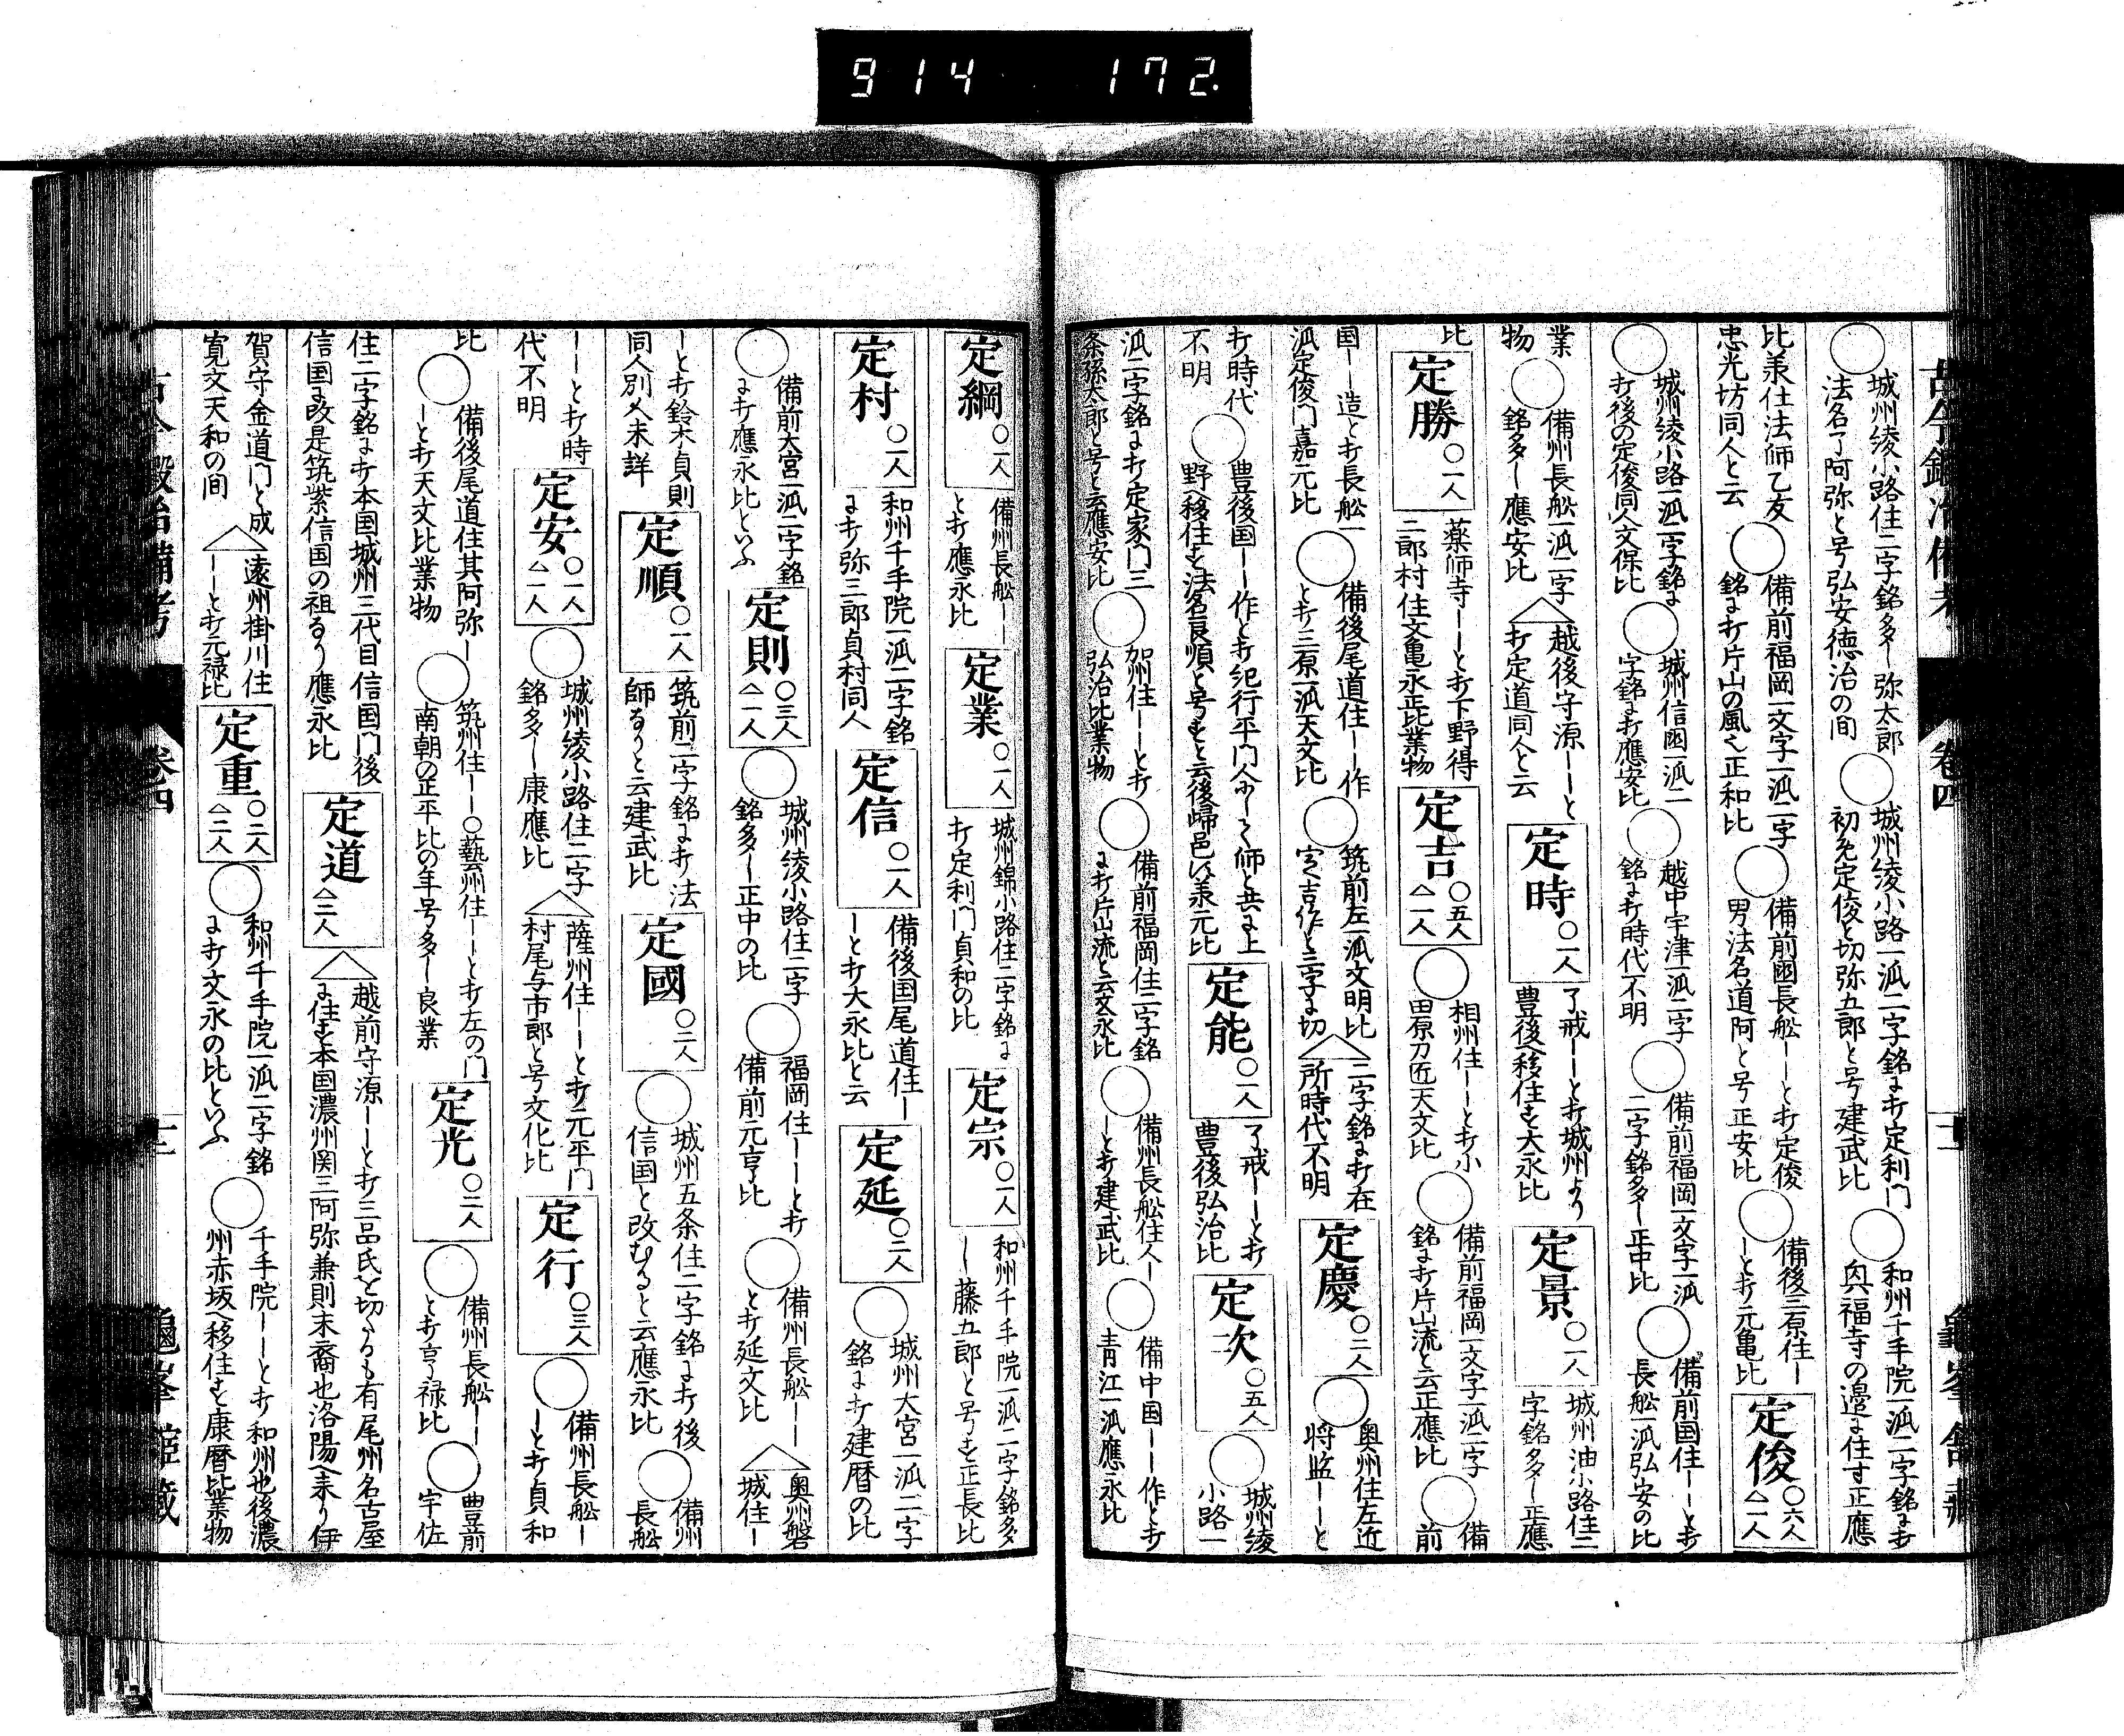 914 172.
古今鍛冶備考 巻四
○城州綾小路住二字銘多シ弥太郎
法名了阿弥と号弘安徳治の間
○城州綾小路一派二字銘ニ打定利門
初名定俊と切弥五郎と号建武比
○和州千手院一派二字銘ニ打
興福寺の邊ニ住す正應
比美住法師乙友
忠光坊同人と云
○備前福岡一文字一派二字
銘ニ打片山の風也正和比
○備前国長舩ーーと打定俊
男法名道阿と号正安比
○備後三原住ー
ーと打元亀比
定俊 ○六人 △一人
○城州綾小路一派二字銘ニ
打後の定俊同人文保比
○城州信国一派二
字銘ニ打應安比
○越中宇津一派二字
銘ニ打時代不明
○備前福岡一文字一派
二字銘多シ正中比
○備前国住ーーと打
長舩一派弘安の比
業
物
○備州長舩一派二字
銘多シ應安比
△越後守源ーーと
打定道同人と云
定時 ○一人
了戒ーーと打城州より
豊後へ移住す大永比
定景 ○一人
城州油小路住二
字銘多シ正應
比
定勝 ○一人
薬師寺ーーと打下野得
二郎村住文亀永正比業物
定吉 ○五人 △一人
○相州住ーーと打小
田原刀匠天文比
○備前福岡一文字一派二字
銘ニ打片山流と云正應比
○備
前
国ーー造と打長舩一
派定俊門嘉元比
○備後尾道住ーー作
と打三原一派天文比
○筑前左一派文明比
定吉作と三字ニ切
△二字銘ニ打在
所時代不明
定慶 ○二人
○奥州住左近
将監ーーと
打時代
不明
○豊後国ーー作と打紀行平門人にして師と共ニ上
野へ移住す法名良順と号すと云後帰邑以美元比
定能 ○一人
了戒ーーと打
豊後弘治比
定次 ○五人
○城州綾
小路一
派二字銘ニ打定家門三
条孫太郎と号と云應安比
○加州住ーーと打
弘治比業物
○備前福岡住二字銘
ニ打片山流と云文永比
○備州長舩住人ー
ーと打建武比
○備中国ーー作と打
青江一派應永比
定綱 ○一人
備州長舩ーー
と打應永比
定業 ○一人
城州錦小路住二字銘ニ
打定利門貞和の比
定宗 ○一人
和州千手院一派二字銘多
シ藤五郎と号す正長比
定村 ○一人
和州千手院一派二字銘
ニ打弥三郎貞村同人
定信 ○一人
備後国尾道住ー
ーと打大永比と云
定延 ○二人
○城州大宮一派二字
銘ニ打建暦の比
○備前大宮一派二字銘
ニ打應永比といふ
定則 ○三人 △一人
○城州綾小路住二字
銘多シ正中の比
○福岡住ーーと打
備前元亨比
○備州長舩ーー
と打延文比
△奥州磐
城住ー
ーと打鈴木貞則
同人別人未詳
定順 ○一人
筑前二字銘ニ打法
師なりと云建武比
定國 ○二人
○城州五条住二字銘ニ打後
信国と改むると云應永比
○備州
長舩
ーーと打時
代不明
定安 ○一人 △一人
○城州綾小路住二字
銘多シ康應比
△薩州住ーーと打元平門
村尾与市郎と号文化比
定行 ○三人
○備州長舩ー
ーと打貞和
比
○備後尾道住其阿弥ー
ーと打天文比業物
○筑州住ーー○藝州住ーーと打左の門
南朝の正平比の年号多シ良業
定光 ○二人
○備州長舩ーー
と打享禄比
○豊前
宇佐
住二字銘ニ打本国城州三代目信国門後
信国ニ改是筑紫信国の祖なり應永比
定道 △三人
△越前守源ーーと打三品氏を切たるも有尾州名古屋
ニ住す本国濃州関三阿弥兼則末裔也洛陽へ来り伊
賀守金道門と成
寛文天和の間
△遠州掛川住
ーーと打元禄比
定重 ○二人 △二人
○和州千手院一派二字銘
ニ打文永の比といふ
○千手院ーーと打和州也後濃
州赤坂へ移住す康暦比業物
古今鍛冶備考 巻四